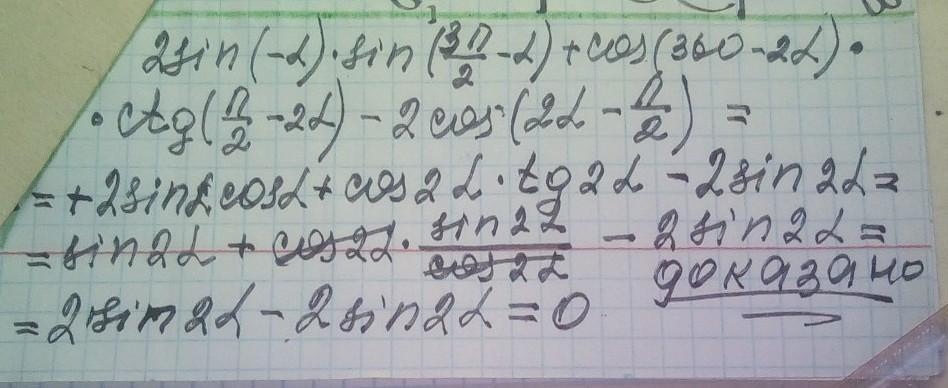 2sin(-α)·sin(3π/2-α)+cos(360-2α)·
·ctg(π/2-2α)-2cos(2α-π/2)=
=+2sinα cosα+cos2α·tg2α-2sin2α=
=sin2α+cos2α·sin2α/cos2α-2sin2α=
=2sin2α-2sin2α=0 доказано